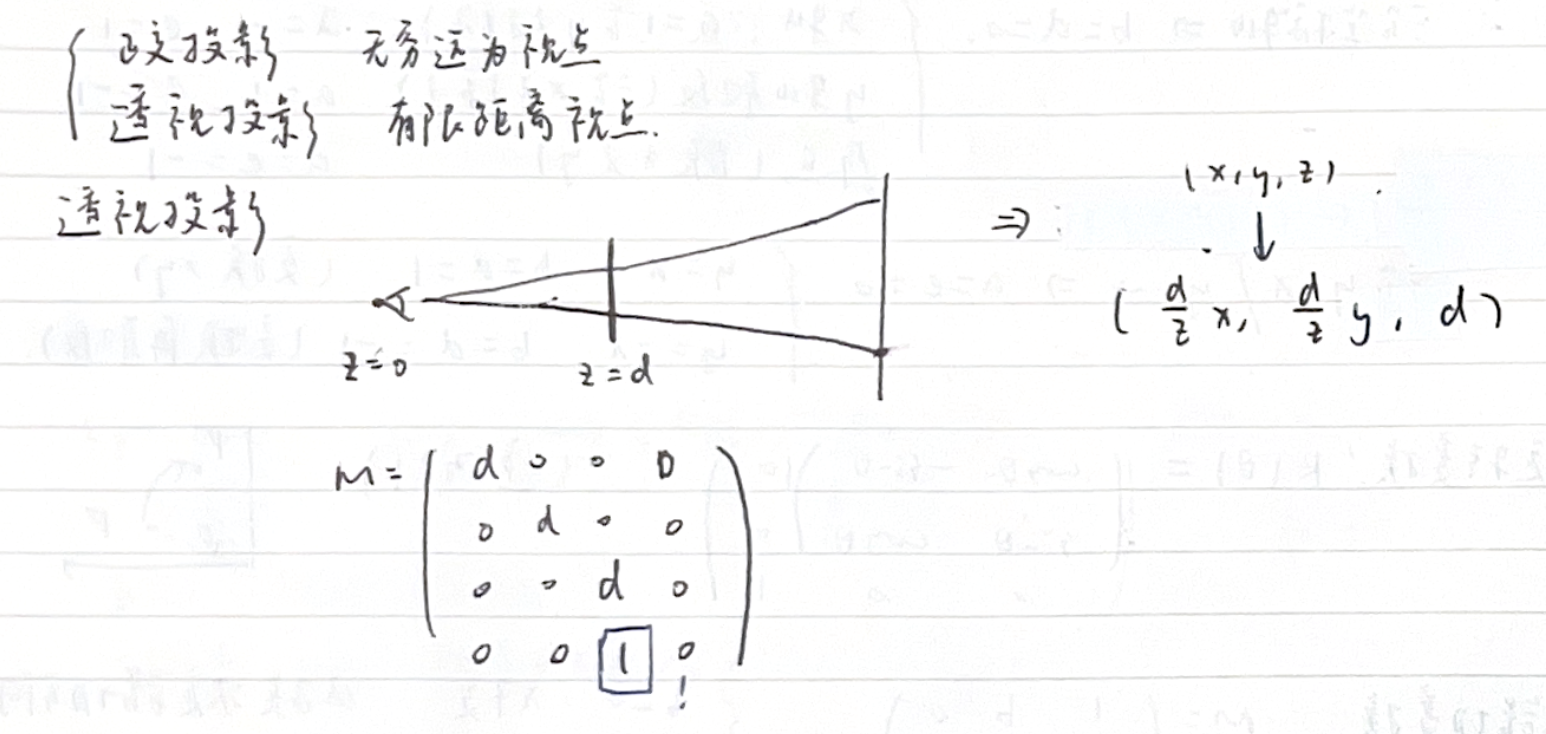 正交投影 无穷远为视点
透视投影 有限距离视点.
透视投影
z=0
z=d
⇒
(x,y,z)
↓
(d/z x, d/z y, d)
M=
d 0 0 0
0 d 0 0
0 0 d 0
0 0 1 0
!